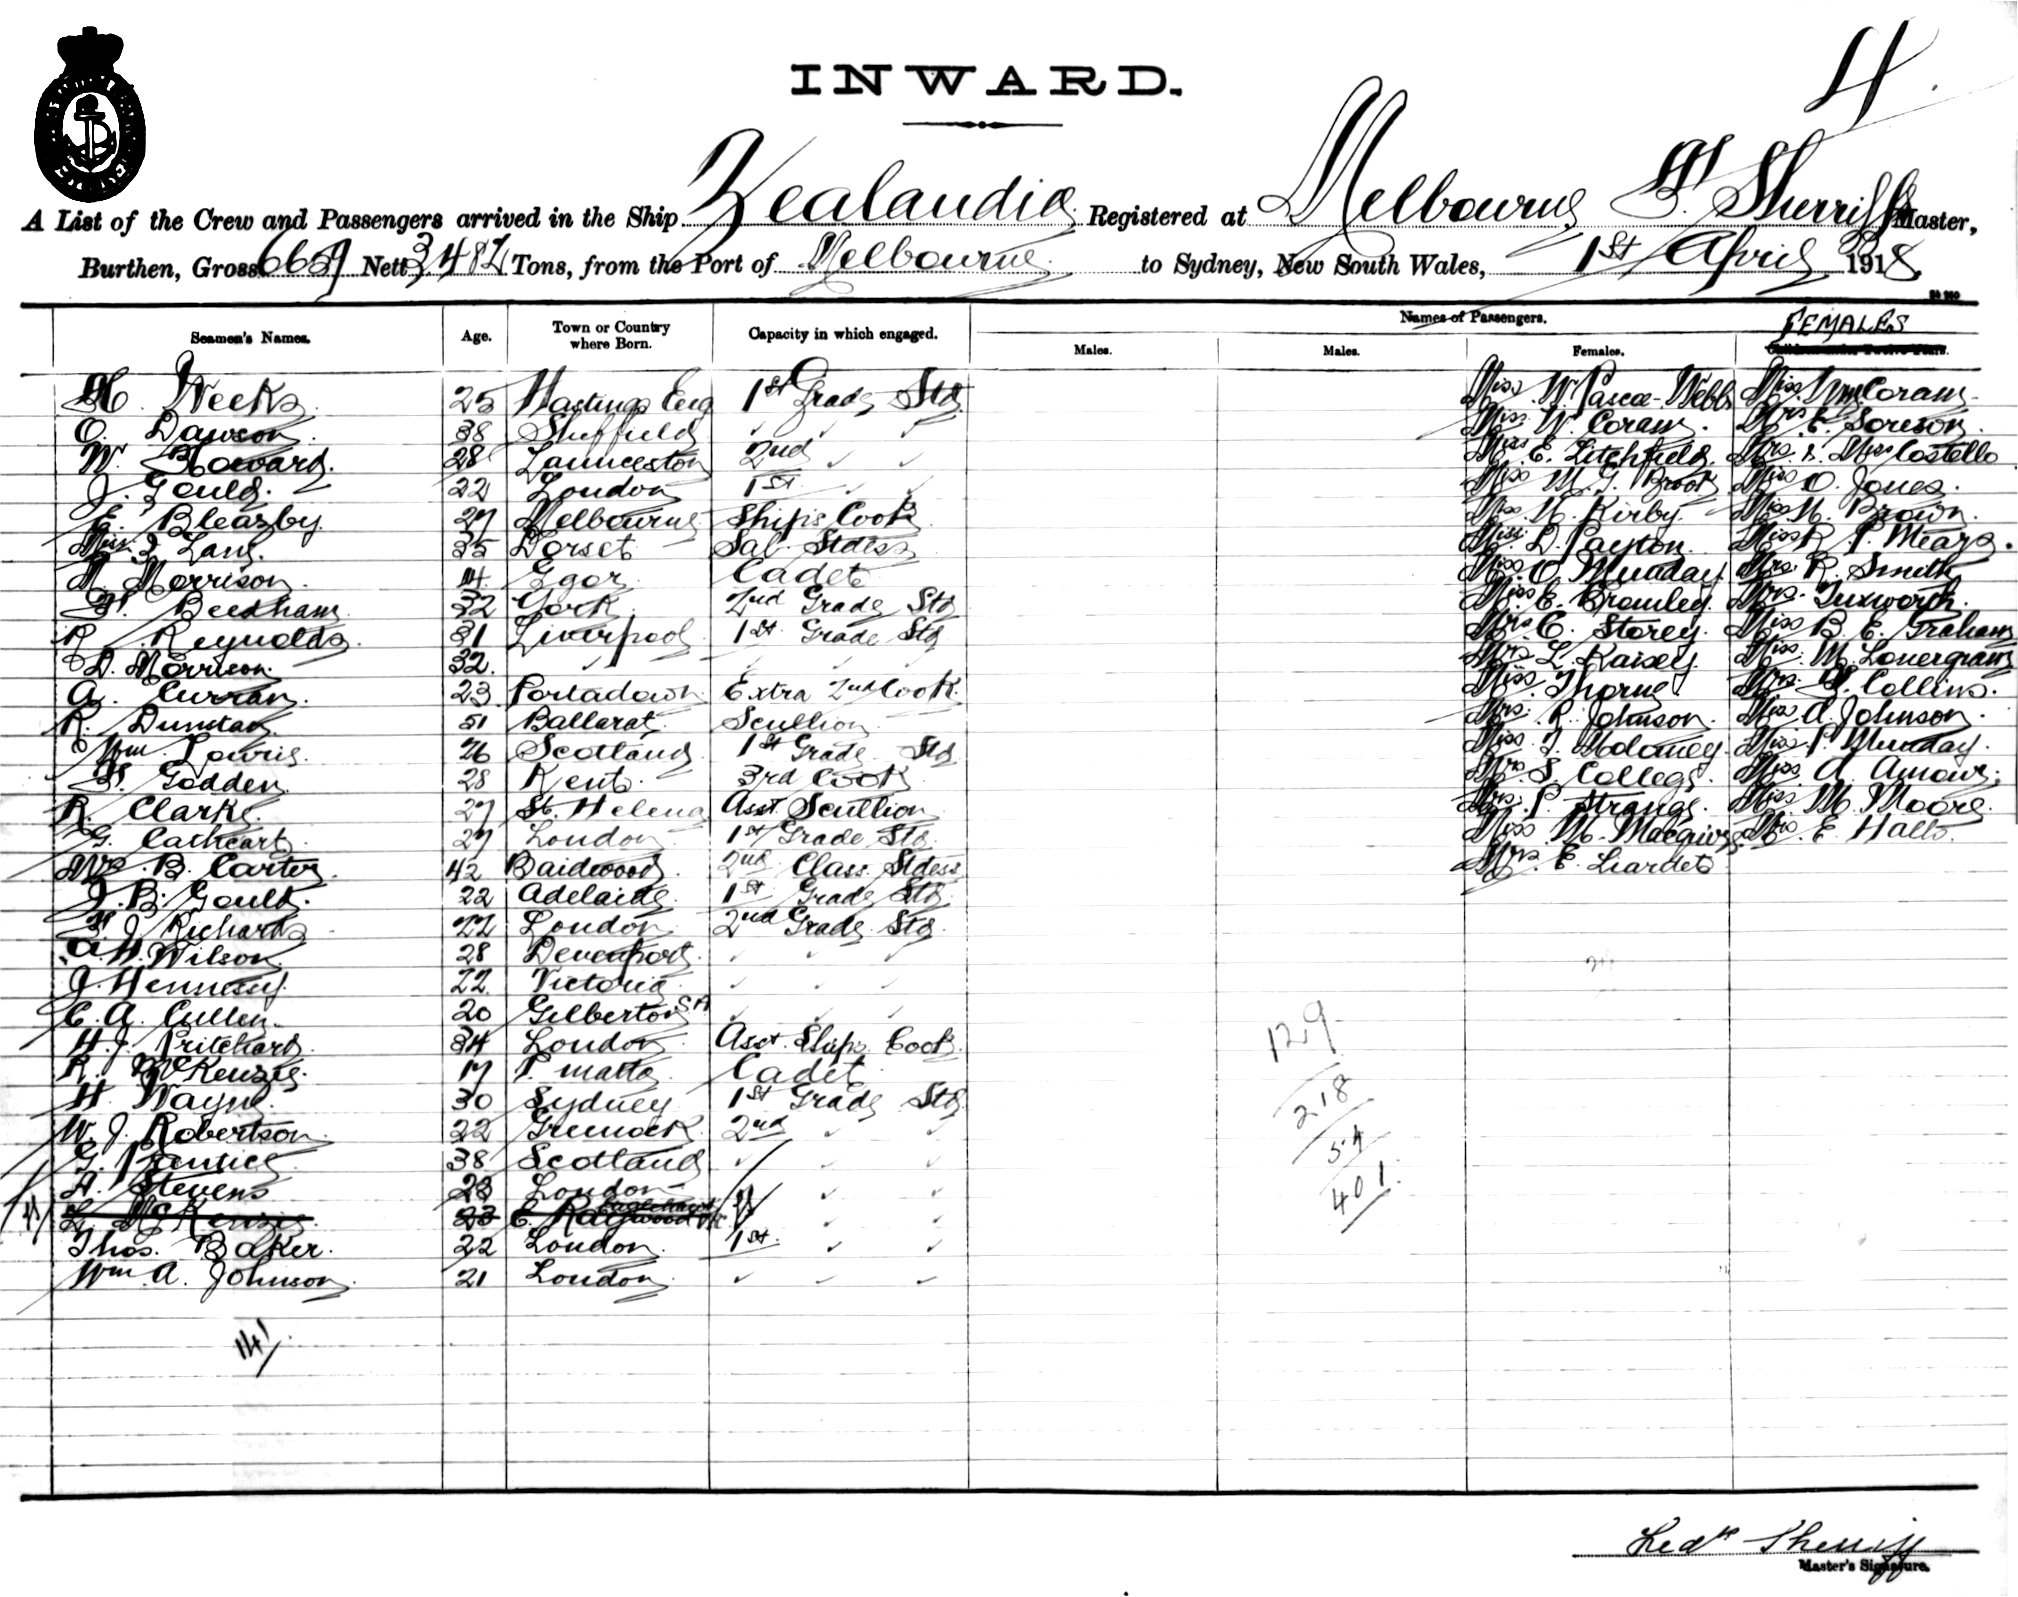 4.
INWARD.
A List of the Crew and Passengers arrived in the Ship Zealandia Registered at Melbourne F. Sherriff Master,
Burthen, Gross 6659 Nett 3487 Tons, from the Port of Melbourne to Sydney, New South Wales, 1st April 1918
Seamen's Names. Age. Town or Country where Born. Capacity in which engaged. Names of Passengers.
Males. Males. Females. FEMALES
H. Weeks 25 Hastings Eng 1st Grade Std Miss W. Pascoe-Webb Miss Coram
O. Dawson 38 Sheffield ✓ ✓ ✓ Miss W. Coram. Mrs E. Soreson.
W. Howard. 28 Launceston 2nd ✓ ✓ Miss E. Litchfield. Mrs. & Miss Costello
J. Gould. 22 London 1st ✓ ✓ Miss M. J. Brook Miss O. Jones.
E. Bleazby. 27 Melbourne Ships Cook Miss N. Kirby. Miss N. Brown.
Miss J. Lang. 35 Dorset Sal. Stdess Miss. D. Payton. Miss R. P. Mears.
N. Morrison. 14 Cadet Miss. O. Munday. Mrs. R. Smith
F. Beedham. 32 York. 2nd Grade Std Miss E. Bromley. Mrs. Tuxworth.
R. Reynolds. 31 Liverpool. 1st Grade Std Mrs C. Storey. Miss B. E. Graham
D. Morrison. 32. ✓ ✓ ✓ ✓ Mrs L. Kaisey. Miss. M. Lonergram
A. Curran. 23 Portadown Extra 2nd Cook. Miss. Thorne Mrs. Collins.
R. Dunstan 51 Ballarat. Scullion Mrs. R. Johnson. Miss A. Johnson.
Wm. Lowrie. 26 Scotland 1st Grade Std Miss. J. Moloney. Miss. P. Munday.
F. Godden. 28 Kent. 3rd Cook Mrs S. College. Miss A.
R. Clarke. 27 St. Helena Asst Scullion Mrs. P. Strange. Miss M. Moore.
G. Cathcart. 27 London 1st Grade Std. Miss M. Mrs. E. Halls.
Mrs. B. Carter. 42 Baidwood. 2nd Class Stdess Mrs. E. Liardet
J. B. Gould. 22 Adelaide. 1st Grade Std
F. J. Richards 22 London 2nd Grade Std.
A. H. Wilson 28 Devenport. ✓ ✓ ✓
J. Hennessy. 22. Victoria. ✓ ✓ ✓
C. A. Cullen. 20 Gilberton SA ✓ ✓ ✓
H. J. Pritchard. 34 London Asst. Ships Cook.
R. McKenzie. 17 P. matta Cadet
H. Wayne. 30 Sydney 1st Grade Std.
W. J. Robertson. 22 Greenock 2nd ✓ ✓
G. Prentice 38 Scotland ✓ ✓ ✓
A. Stevens 23 London ✓ ✓
L. McKenzie. 23 ✓ ✓
Thos. Baker. 22 London. 1st. ✓ ✓
Wm. A. Johnson. 21 London ✓ ✓ ✓
129
218
54
401.
141
Fredk Sherriff
Master's Signature.